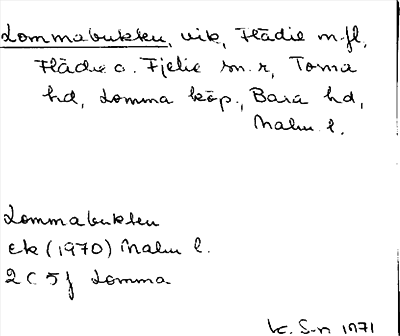 Lommabukten, vik, Flädie m.fl,
Flädie o. Fjelie sn. r, Torna
hd, Lomma köp., Bara hd,
Malm. l.
Lommabukten
ek (1970) Malm l.
2 C 5 j Lomma
K. S-n 1971